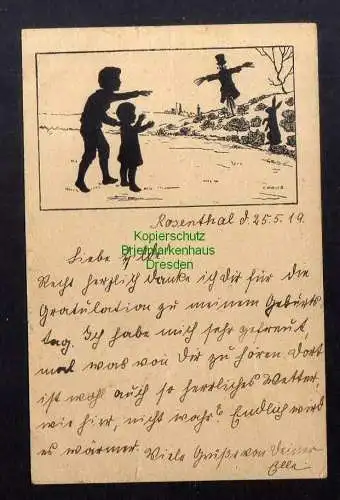 Rosenthal d. 25.5.19.
Kopierschutz
Briefmarkenhaus
Dresden
Liebe
Recht herzlich danke ich Dir für die
Gratulation zu meinem Geburts
tag. Ich habe mich sehr gefreut,
mal was von Dir zu hören. Dort
ist wohl auch so herrliches Wetter,
wie hier, nicht wahr? Endlich wird
es wärmer. Viele Grüße von Deiner
Elle.